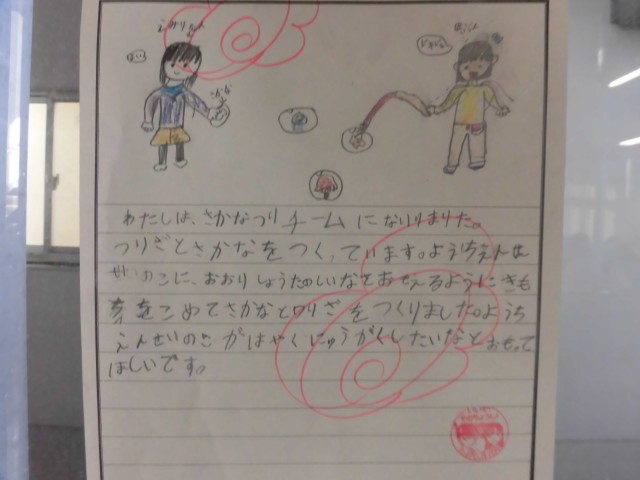 はい
さかな
どうぞ
わたしは、さかなつりチームになりりました。
つりざとさかなをつくっています。ようちえんは
せいのこに、おおりしょうたのしいなとおもえるようにきも
をこめてさかなとつりざをつくりました。ようち
えんせいのこがはやくにゅうがくしたいなとおもって
ほしいです。